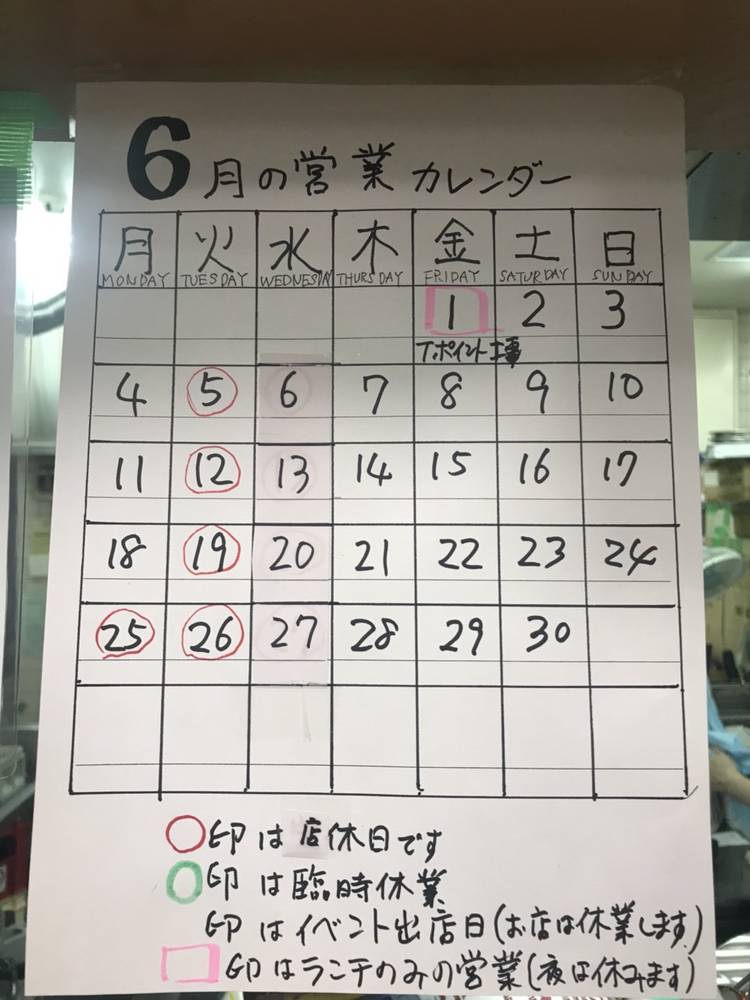 6月の営業カレンダー
月 火 水 木 金 土 日
MONDAY TUESDAY WEDNESDA THURSDAY FRIDAY SATURDAY SUNDAY
1 2 3
Tポイント工事
4 5 6 7 8 9 10
11 12 13 14 15 16 17
18 19 20 21 22 23 24
25 26 27 28 29 30
印は店休日です
印は臨時休業
印はイベント出店日(お店は休業します)
印はランチのみの営業(夜は休みます)